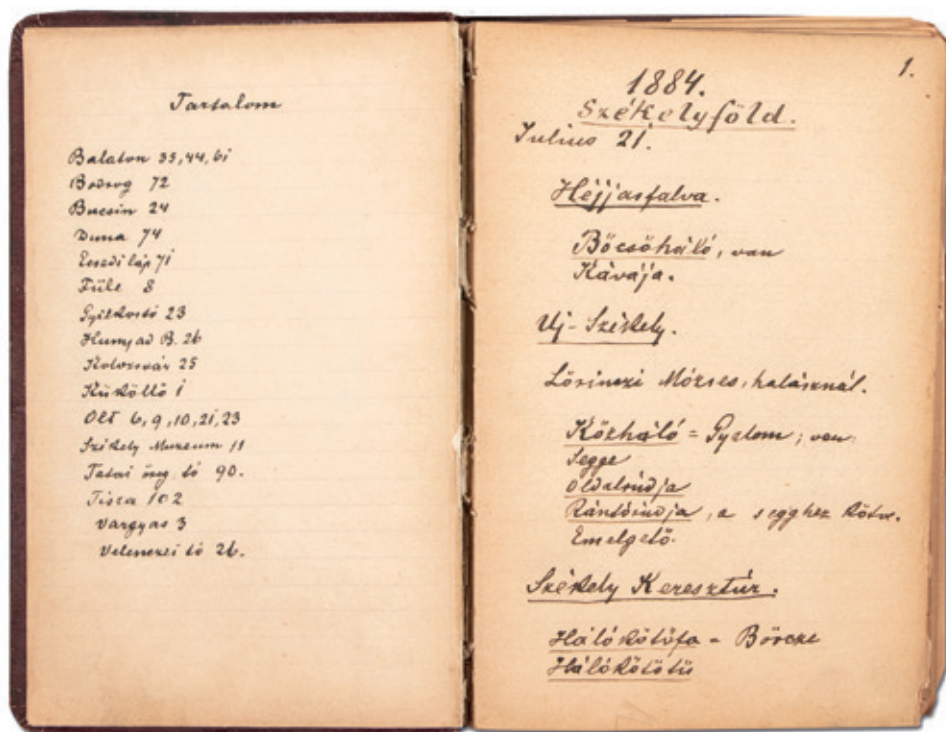 Tartalom
Balaton 35,44,61
Bodrog 72
Bucsin 24
Duna 74
Ecsedi láp 71
Füle 8
Gyilkostó 23
Hunyad B. 26
Kolozsvár 25
Küküllő 1
Olt 6,9,10,21,23
Székely Muzeum 11
Tatai öreg tó 90.
Tisza 102
Vargyas 3
Velenczei tó 26.
1.
1884.
Székelyföld.
Julius 21.
Héjjasfalva.
Bőcsőháló, van
Kávája.
Uj-Székely.
Lőrinczi Mózses, halásznál.
Közháló = Gyalom; van:
Segge
Oldalrúdja
Rántórúdja, a segghez kötve.
Emelgető.
Székely Keresztúr.
Hálókötőfa = Börcze
Hálókötőtű